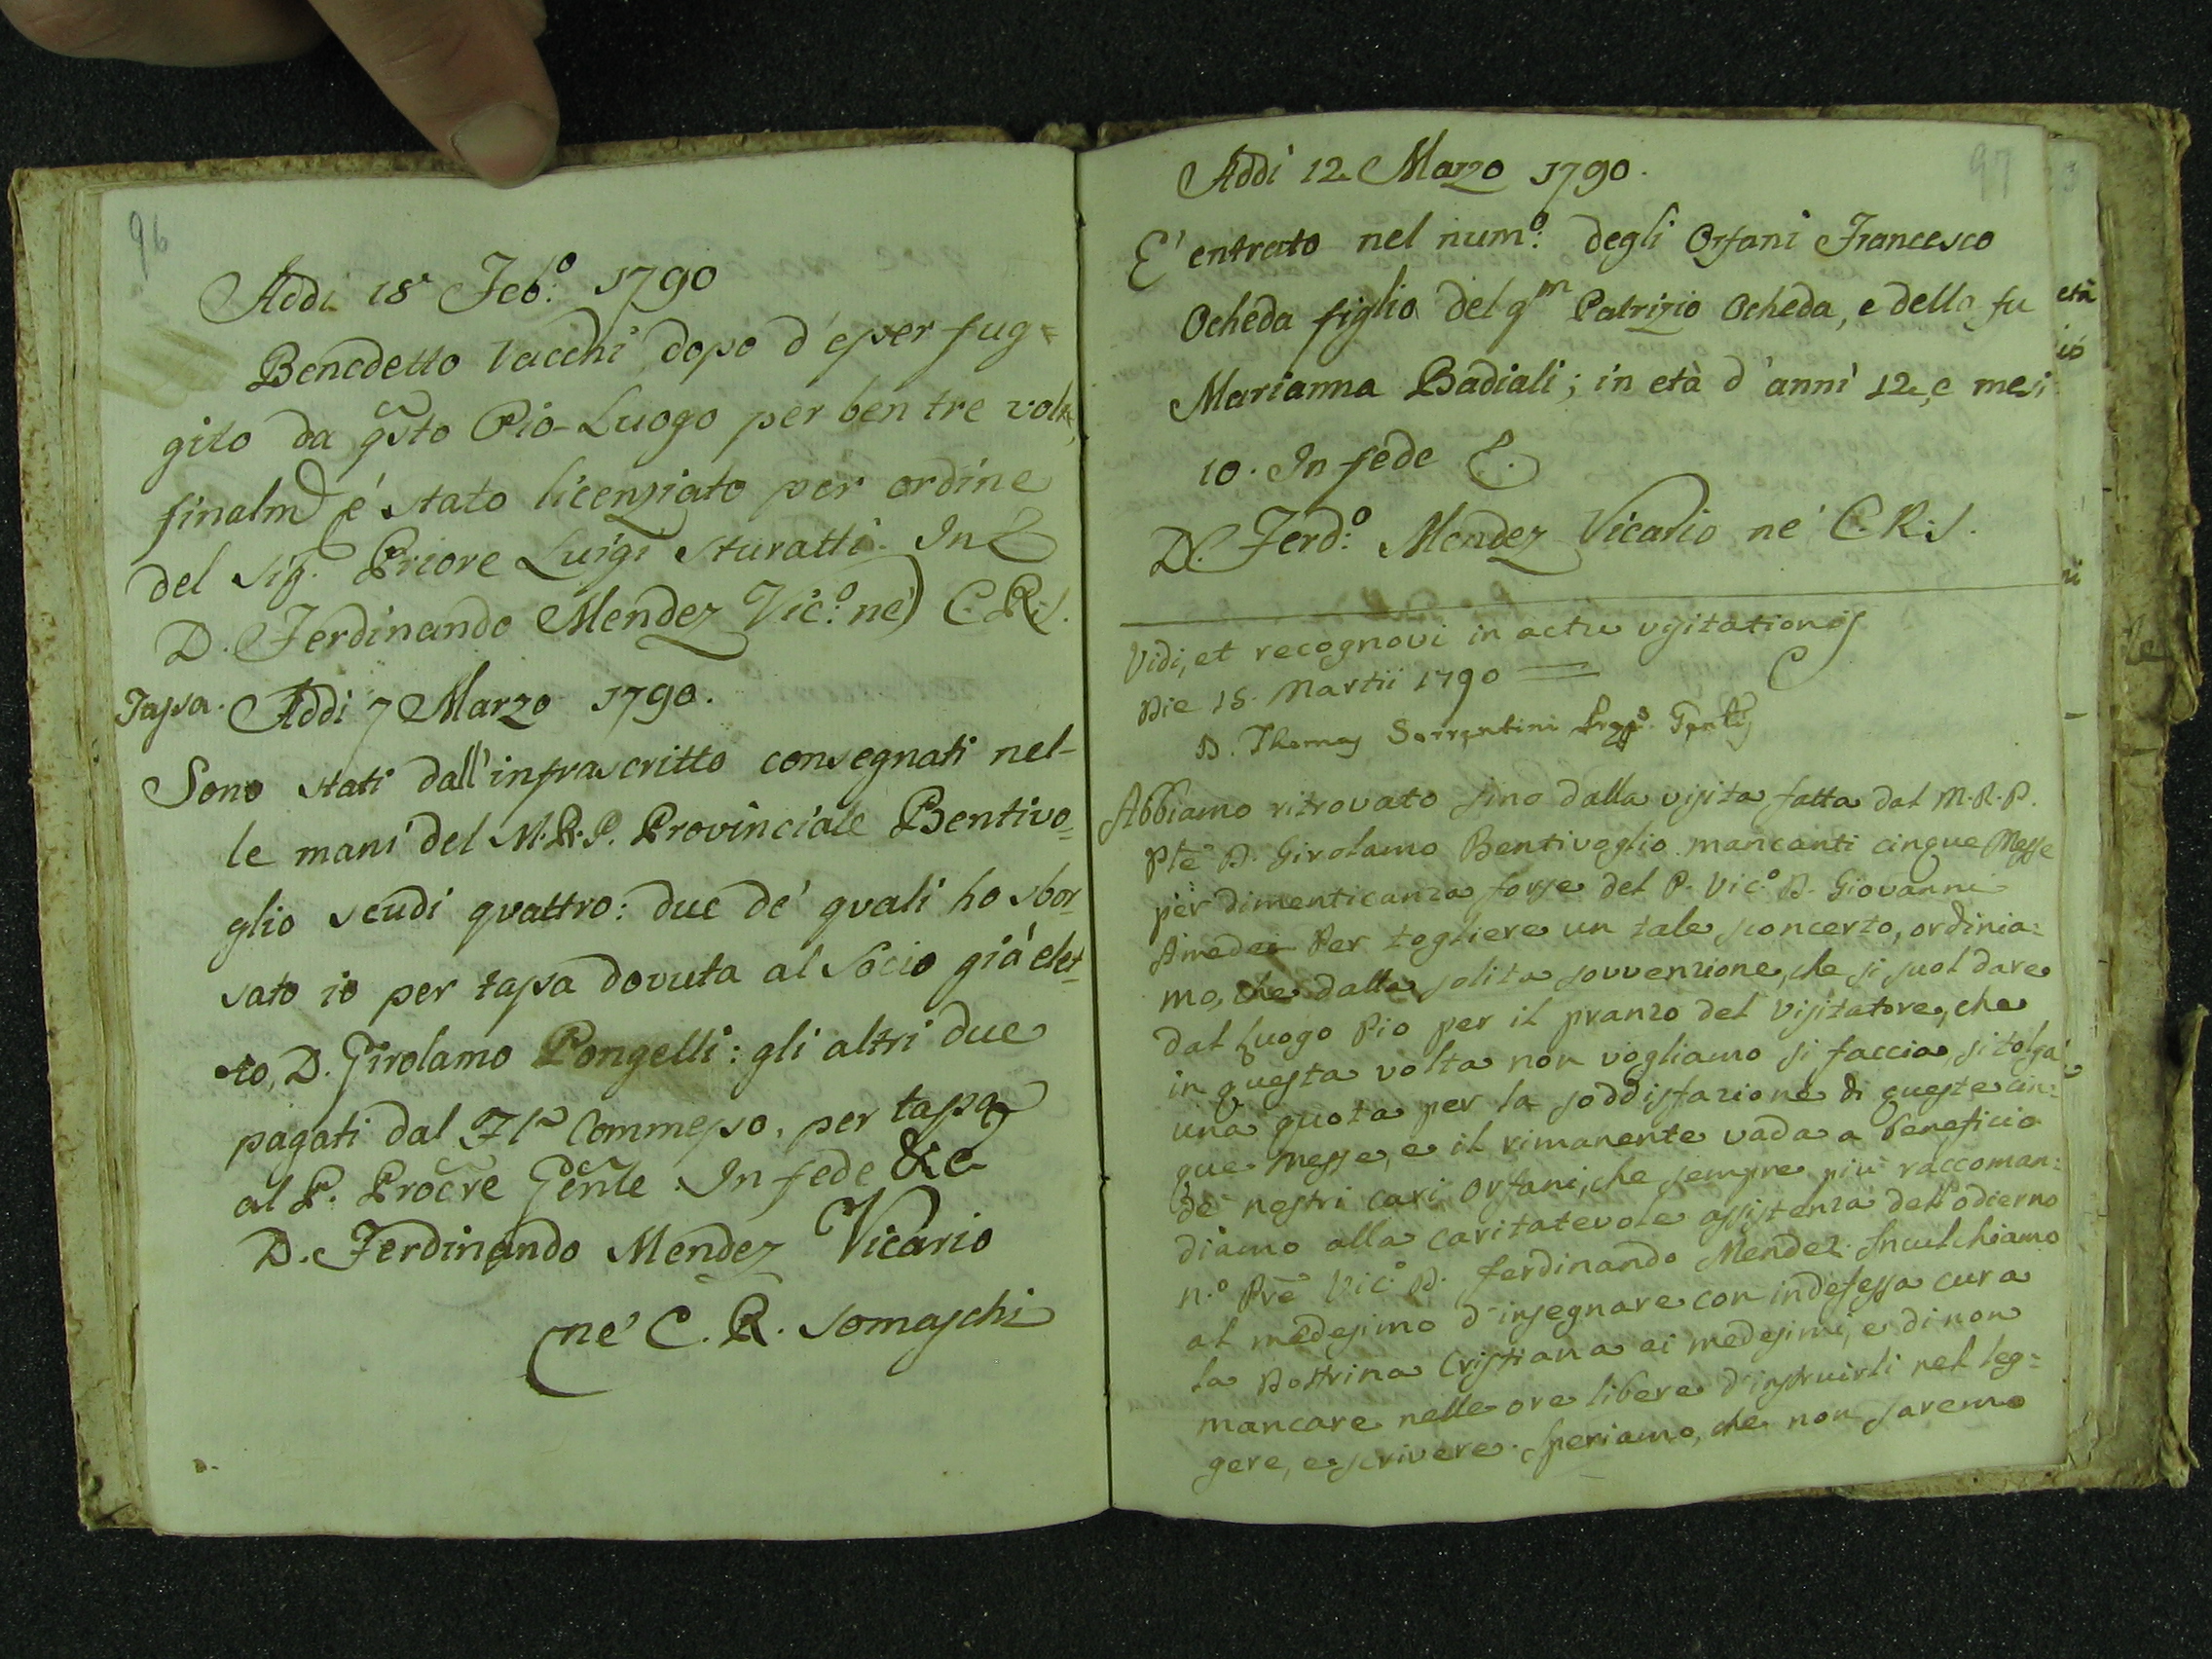 96
Addi 18 Feb.o 1790
Benedetto Vacchi, dopo d'esser fug=
gito da qsto Pio-Luogo per ben tre volte,
finalm.e é stato licenziato per ordine
del Sig. Priore Luigi Sturatti. In &
D. Ferdinando Mendez Vic.o ne' C.R.S.
Tassa. Addi 7 Marzo 1790.
Sono stati dall'infrascritto consegnati nel-
le mani del M.R.P. Provinciale Bentivo=
glio scudi quattro: due de' quali ho sbor=
sato io per tassa dovuta al Socio già elet=
to, D. Girolamo Pongelli: gli altri due
pagati dal Fl. Commesso, per tassa
al P. Procre Genle. In fede &c
D. Ferdinando Mendez Vicario
ne' C. R. Somaschi
97
Addi 12 Marzo 1790.
E' entrato nel num.o degli Orfani Francesco
Ocheda figlio del qm Patrizio Ocheda, e della fu
Marianna Badiali; in età d'anni 12, e mesi
10. In fede &.
D. Ferd.o Mendez Vicario ne' C.R.S.
Vidi, et recognovi in actu visitationis
Die 15. Martii 1790
D. Thomas Sorrentini
Abbiamo ritrovato sino dalla visita fatta dal M.R.P.
Ple D. Girolamo Bentivoglio mancanti cinque Messe
per dimenticanza forse del P. Vic.o D. Giovanni
Amedei Per togliere un tale sconcerto, ordinia=
mo, che dalla solita sovvenzione, che si suol dare
dal Luogo Pio per il pranzo del Visitatore, che
in questa volta non vogliamo si faccia, si tolga
una quota per la soddisfazione di queste cin=
que Messe, e il rimanente vada a beneficio
de' nostri cari Orfani, che sempre più raccoman=
diamo alla caritatevole assistenza dell'odierno
n.o Pre Vic.o D. Ferdinando Mendez. Inculchiamo
al medesimo d'insegnare con indefessa cura
la Dottrina Cristiana ai medesimi, e di non
mancare nelle ore libere d'instruirli nel leg=
gere, e scrivere. Speriamo, che non saremo